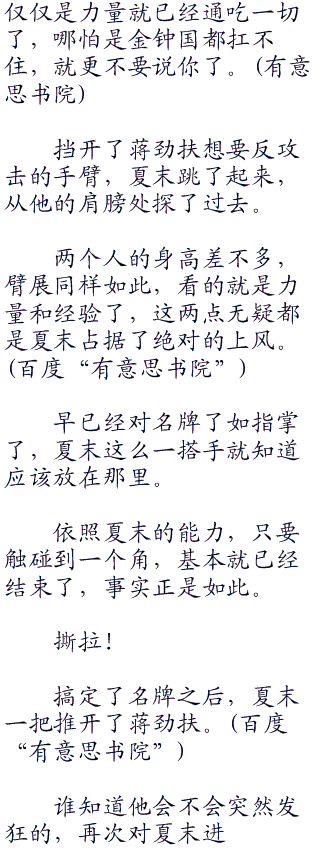 仅仅是力量就已经通吃一切
了，哪怕是金钟国都扛不
住，就更不要说你了。(有意
思书院)
挡开了蒋劲扶想要反攻
击的手臂，夏末跳了起来，
从他的肩膀处探了过去。
两个人的身高差不多，
臂展同样如此，看的就是力
量和经验了，这两点无疑都
是夏末占据了绝对的上风。
(百度“有意思书院”)
早已经对名牌了如指掌
了，夏末这么一搭手就知道
应该放在那里。
依照夏末的能力，只要
触碰到一个角，基本就已经
结束了，事实正是如此。
撕拉！
搞定了名牌之后，夏末
一把推开了蒋劲扶。(百度
“有意思书院”)
谁知道他会不会突然发
狂的，再次对夏末进